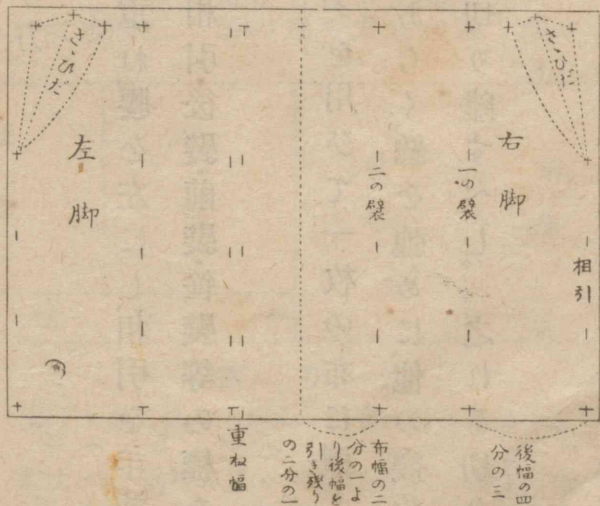 さゝひだ
右脚
相引
一の襞
二の襞
さゝひだ
左脚
後幅の四
分の三
布幅の二
分の一よ
り後幅を
引き残り
の二分の一
重ね幅